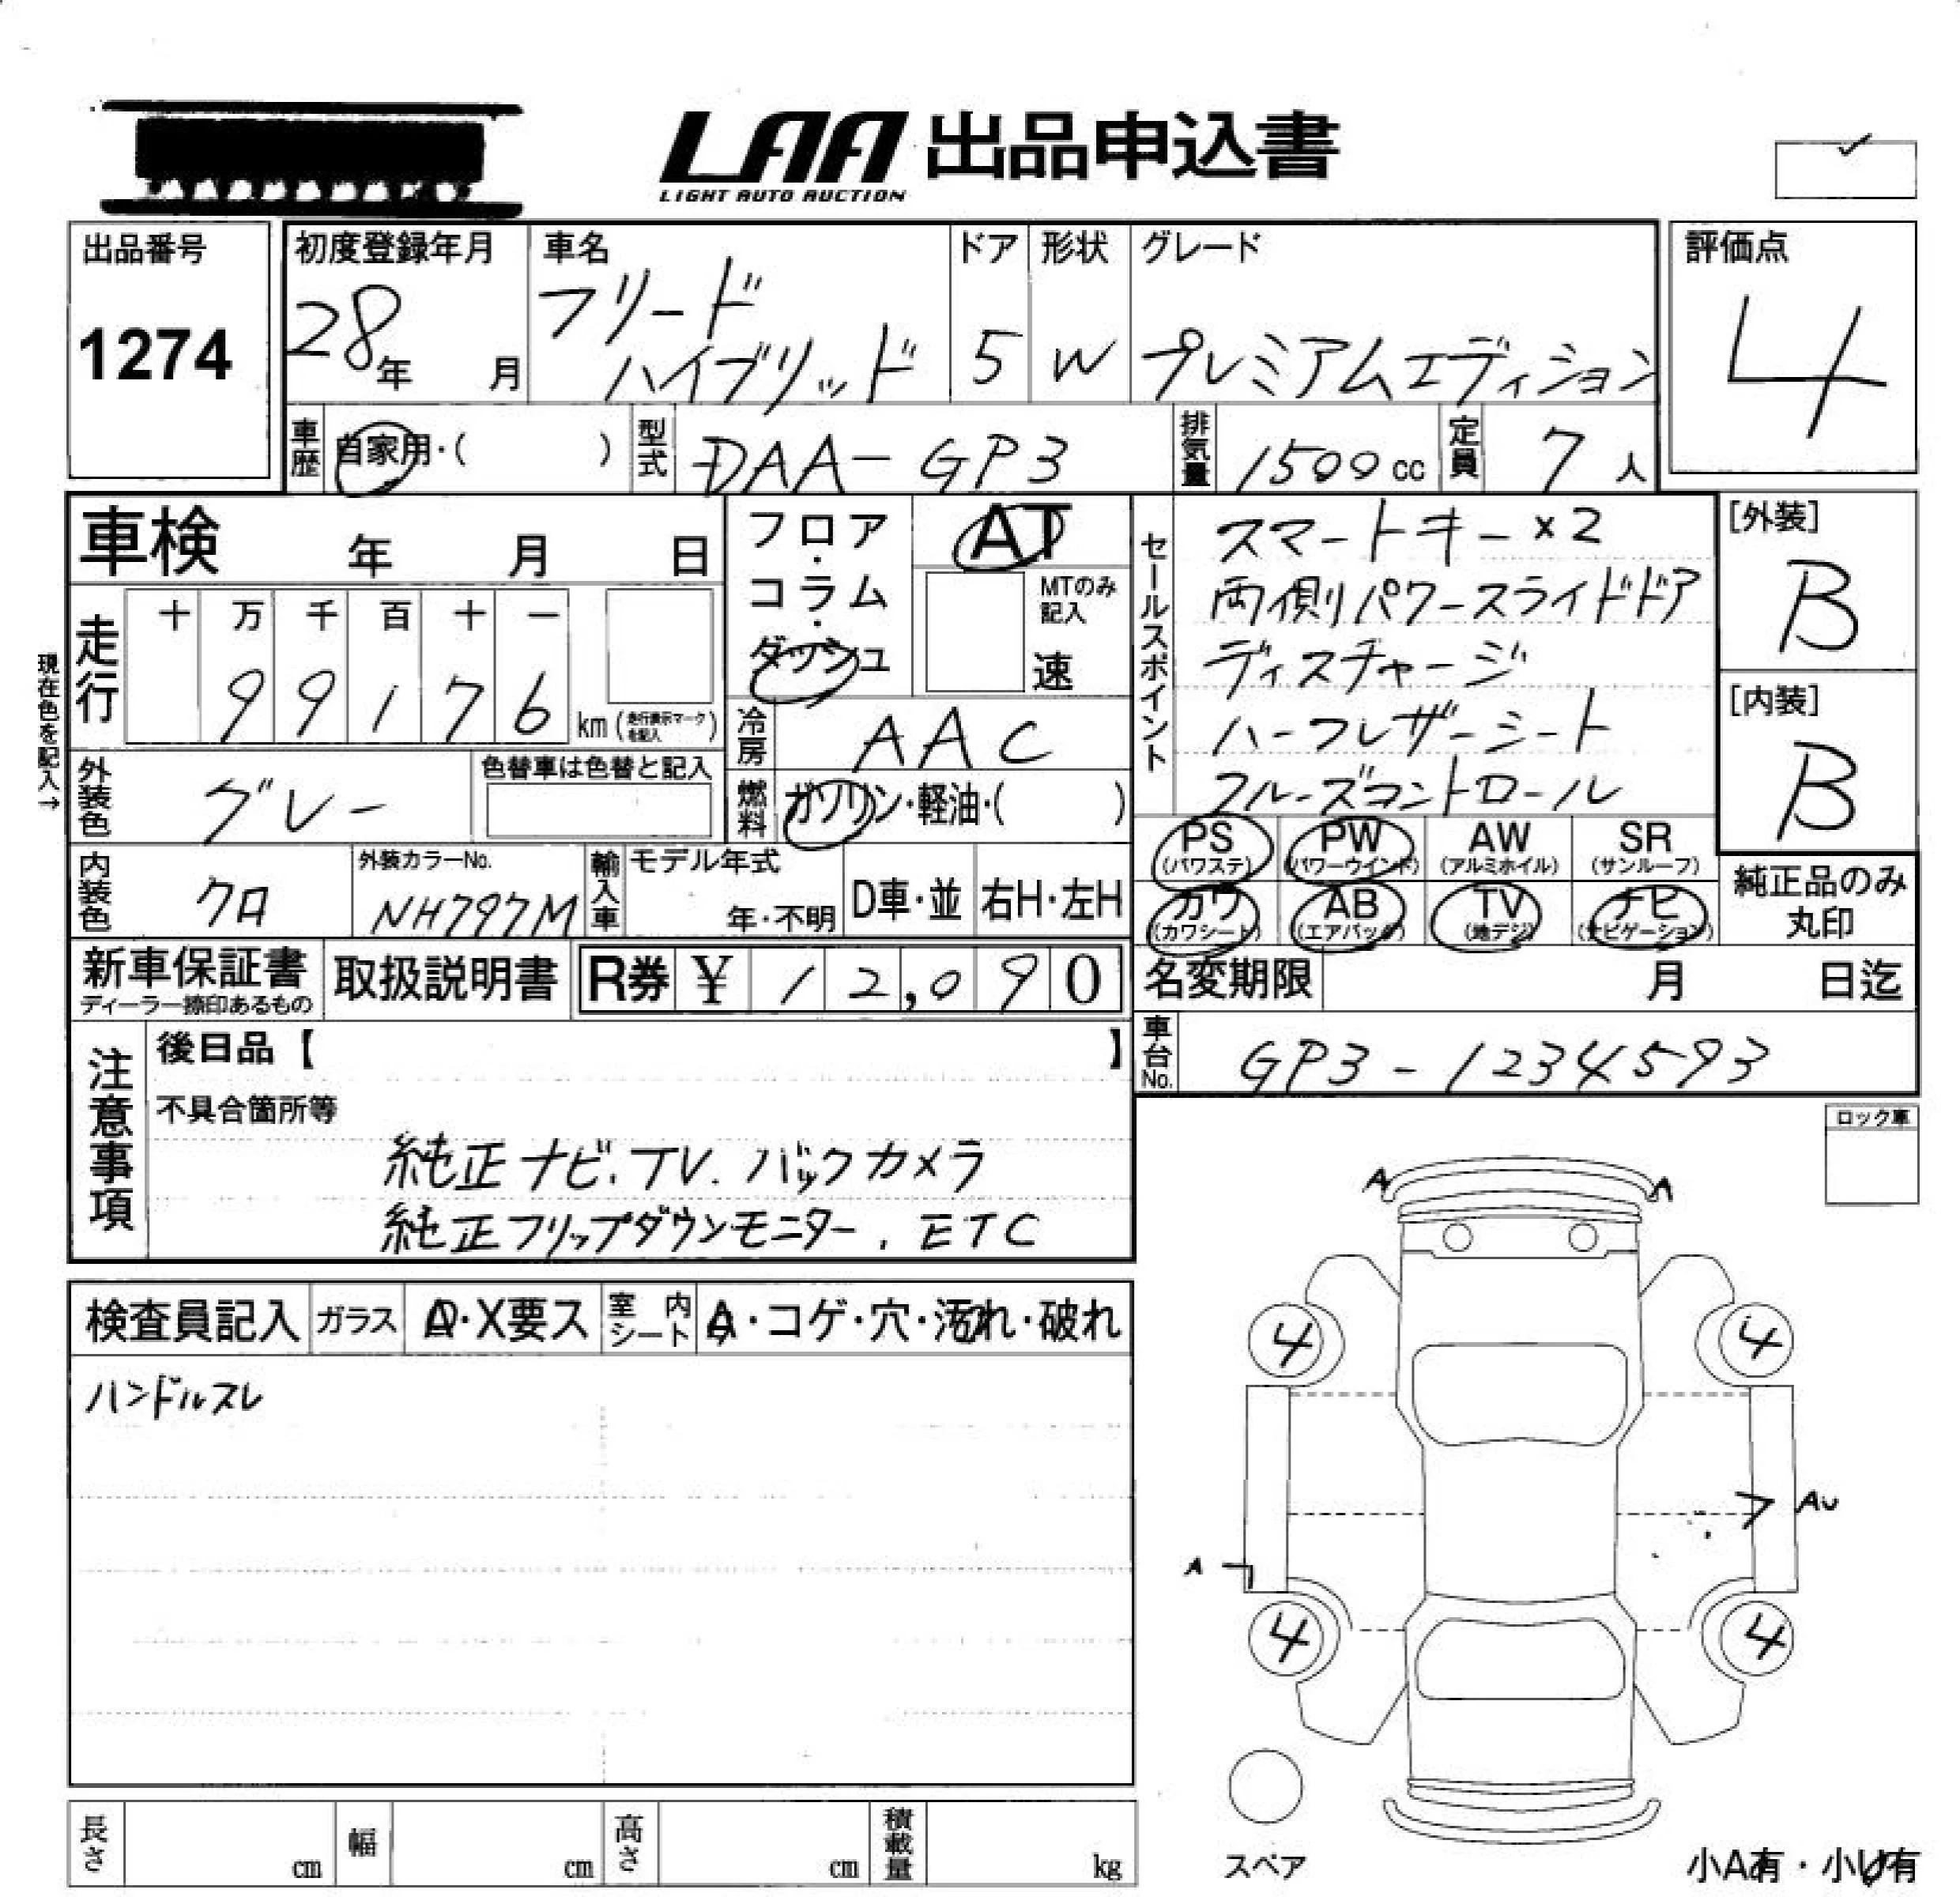 LAA 出品申込書
LIGHT AUTO AUCTION
出品番号
1274
初度登録年月
28年 月
車名
フリード
ハイブリッド
ドア
5
形状
W
グレード
プレミアムエディション
評価点
4
車歴 自家用・( )
型式 DAA-GP3
排気量 1500cc
定員 7人
車検 年 月 日
フロア・コラム・ダッシュ
AT
MTのみ記入
速
セールスポイント
スマートキー×2
両側パワースライドドア
ディスチャージ
ハーフレザーシート
クルーズコントロール
[外装]
B
[内装]
B
現在色を記入→
走行
十 万 千 百 十 一
9 9 1 7 6 km (走行表示マークを記入)
冷房 AAC
外装色 グレー
色替車は色替と記入
燃料 ガソリン・軽油・( )
PS (パワステ)
PW (パワーウインド)
AW (アルミホイル)
SR (サンルーフ)
カワ (カワシート)
AB (エアバック)
TV (地デジ)
ナビ (ナビゲーション)
純正品のみ丸印
内装色 クロ
外装カラーNo.
NH797M
輸入車
モデル年式
年・不明
D車・並
右H・左H
新車保証書
ディーラー捺印あるもの
取扱説明書
R券 ¥ 12,090
名変期限 月 日迄
車台No. GP3-1234593
注意事項
後日品【 】
不具合箇所等
純正ナビ.TV.バックカメラ
純正フリップダウンモニター.ETC
ロック車
検査員記入
ガラス
A・X要ス
室内シート
A・コゲ・穴・汚れ・破れ
ハンドルスレ
A A
4 4
AU
A
4 4
スペア
長さ cm
幅 cm
高さ cm
積載量 kg
小A有・小U有